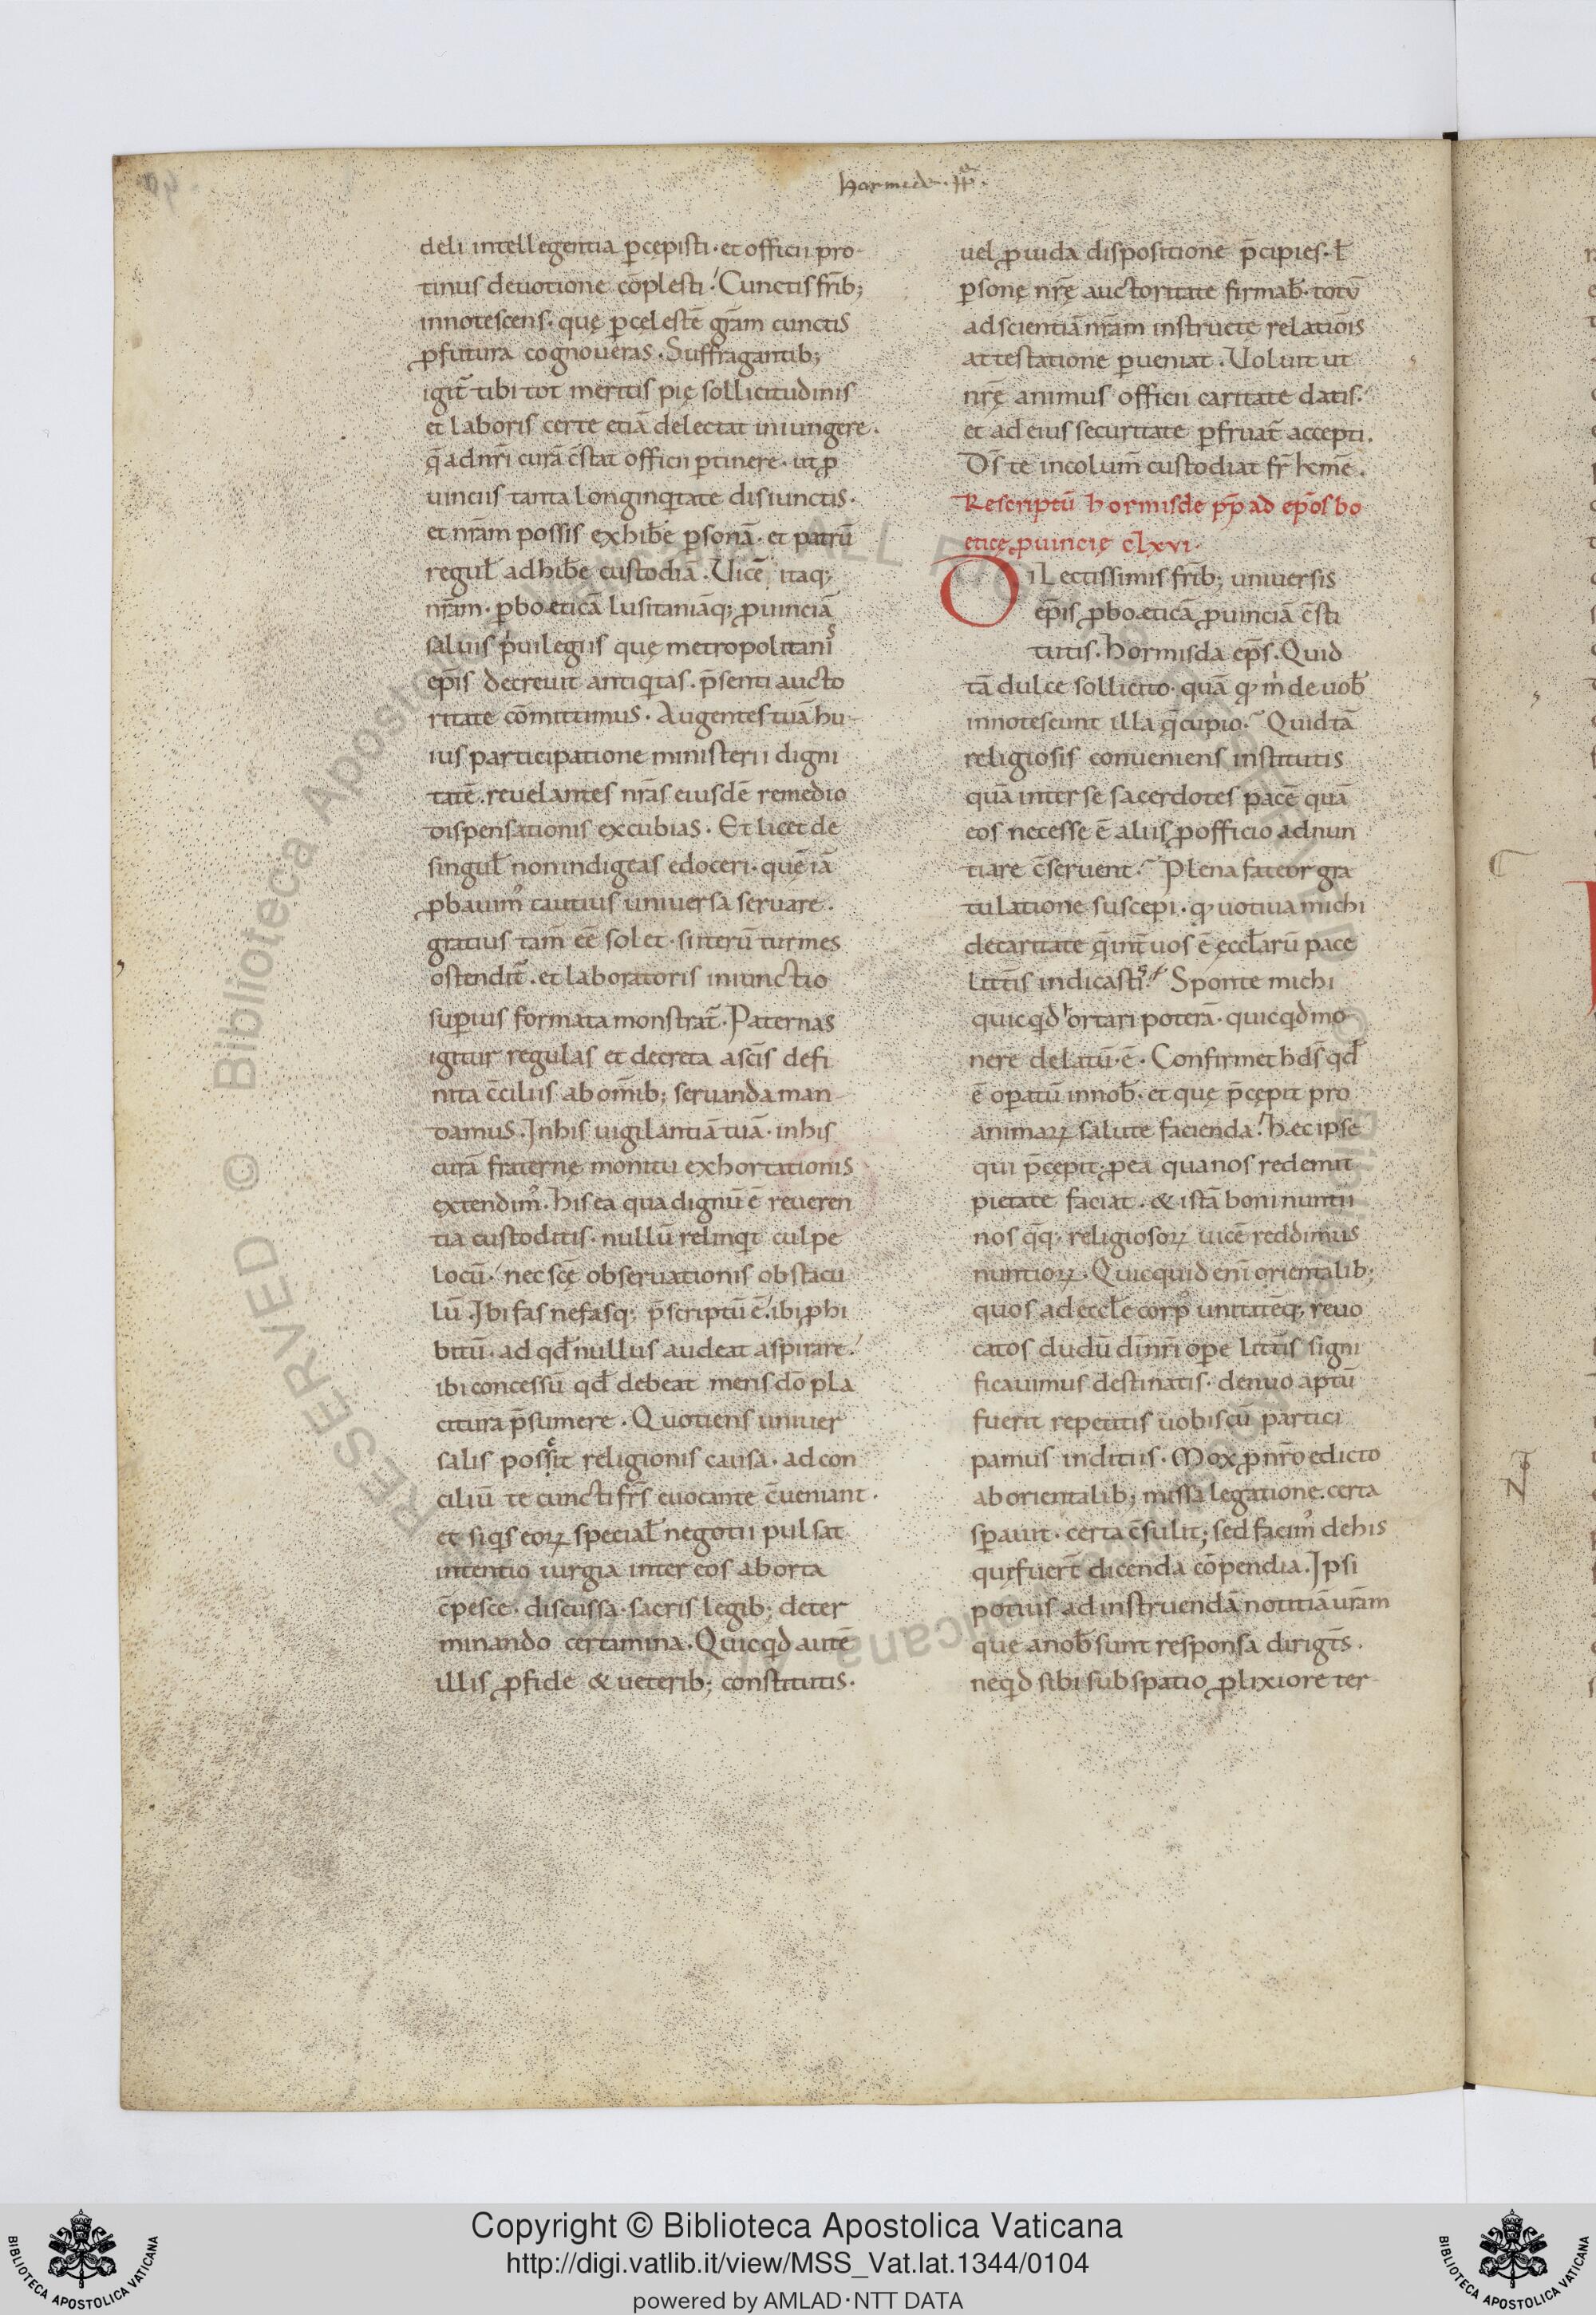 Hormisde · pp̄ ·
deli intellegentia ꝑcepisti · et officii pro-
tinus deuotione cōplesti · Cunctis fr̄ib;
innotescens · quę ꝑ celestē gr̄am cunctis
ꝓfutura cognoueras · Suffragantib;
igit̄ tibi tot meritis pię sollicitudinis
et laboris certe etiā delectat iniungere ·
q̄ ad nr̄i curā c̄stat officii ꝑtinere · ut ꝓ
uinciis tanta longinq̍tate disiunctis ·
et nr̄am possis exhibe̅ ꝑsonā · et patrū
regul̄ adhibe̅ custodiā · Uicē itaq;
nr̄am · ꝑ boeticā lusitaniāq; ꝓuinciā
saluis p̍uilegiis quę metropolitanis
ep̄is decreuit antiq̍tas · p̄senti aucto
ritate cōmittimus · Augentes tuā hu-
ius participatione ministerii digni
tatē · reuelantes nr̄as eiusdē remedio
dispensationis excubias · Et licet de
singul̄ non indigeas edoceri · quē iā
ꝓbauim᾿ cautius uniuersa seruare ·
gratius tam̄ eē solet · si iterū turmes
ostendit̄ · et laboratoris iniunctio
suꝑius formata monstrat̄ · Paternas
igitur regulas et decreta a sc̄is defi
nita c̄ciliis ab om̄ib; seruanda man-
damus · In his uigilantiā tuā · in his
curā fraternę monitu exhortationis
extendim᾿ · His ea qua dignū ē reueren
tia custoditis · nullū relinq̍t culpe
locū · nec sc̄ę obseruationis obstacu
lū · Ibi fas nefasq; p̄scriptū ē · ibi ꝓhi
bitū · ad qd̄ nullus audeat aspirare ·
ibi concessū qd̄ debeat mens dō pla
citura p̄sumere · Quotiens uniuer
salis possit religionis causa · ad con
ciliū te cuncti fr̄s euocante c̄ueniant ·
et siq̍s eoꝝ special̄ negotii pulsat
intentio iurgia inter eos aborta
c̄pesce · discussa · sacris legib; deter
minando certamina · Quicq̍d autē
illis ꝓ fide & ueterib; constitutis ·
uel ꝓuida dispositione p̄cipies · ł
ꝑsonę nr̄ę auctoritate firmab̄ · totū
ad scientiā nr̄am instructę relatiōis
attestatione ꝑueniat · Uoluit ut
nr̄ę animus officii caritate datis ·
et ad eius securitate ꝑfruat̄ accepti ·
D̄s te incolum̄ custodiat fr̄ k̄me ·
Rescriptū hormisde pp̄ ad ep̄os bo
eticę ꝓuincię clxvi ·
Dilectissimis fr̄ib; uniuersis
ep̄is ꝑ boeticā ꝓuinciā c̄sti
tutis · Hormisda ep̄s · Quid
tā dulce sollicito · quā qꝫ m̍ de uob̄
innotescunt illa q̄ cupio · Quid tā
religiosis conueniens institutis
quā inter se sacerdotes pacē quā
eos necesse ē aliis ꝓ officio adnun
tiare c̄seruent · Plena fateor gra
tulatione suscepi · qꝫ uotiua michi
de caritate q̄ int̄ uos ē eccl̄arū pace
litt̄is indicastis · Sponte michi
quicq̍d hortari poterā · quicq̍d mo-
nere delatū · ē · Confirmet h̄ d̄s qd̄
ē oꝑatū in nob̄ · et quę p̄cepit pro
animaꝝ salute facienda · hęc ipse
qui p̄cepit · ꝓ ea qua nos redemit
pietate faciat · & istā boni nuntii
nos q̄q; religiosoꝝ uicē reddimus
nuntioꝝ · Quicquid eni̅ orientalib;
quos ad eccl̄e corp᾿ unitatēq; reuo
catos dudū dn̄i nr̄i ope litt̄is signi
ficauimus destinatis · denuo aptū
fuerit repetitis uobiscū partici
pamus inditiis · Mox ꝓ nr̄o edicto
ab orientalib; missa legatione · certa
sꝑauit · certa c̄sulit; sed facim᾿ de his
quę fuer̄t dicenda cōpendia · Ipsi
potius ad instruendā notitiā ur̄am
que a nob̄ sunt responsa dirigēs ·
neq̍d sibi sub spatio ꝓlixiore ter-
Copyright © Biblioteca Apostolica Vaticana
http://digi.vatlib.it/view/MSS_Vat.lat.1344/0104
powered by AMLAD·NTT DATA
BIBLIOTECA APOSTOLICA VATICANA
BIBLIOTECA APOSTOLICA VATICANA